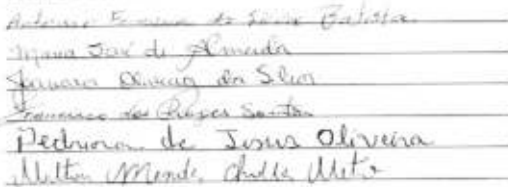 Antonio Ferreira da Silva Batista
Maria José de Almeida
Oliveira da Silva
Francisco das Chagas Santos
de Jesus Oliveira
Milton Mendes